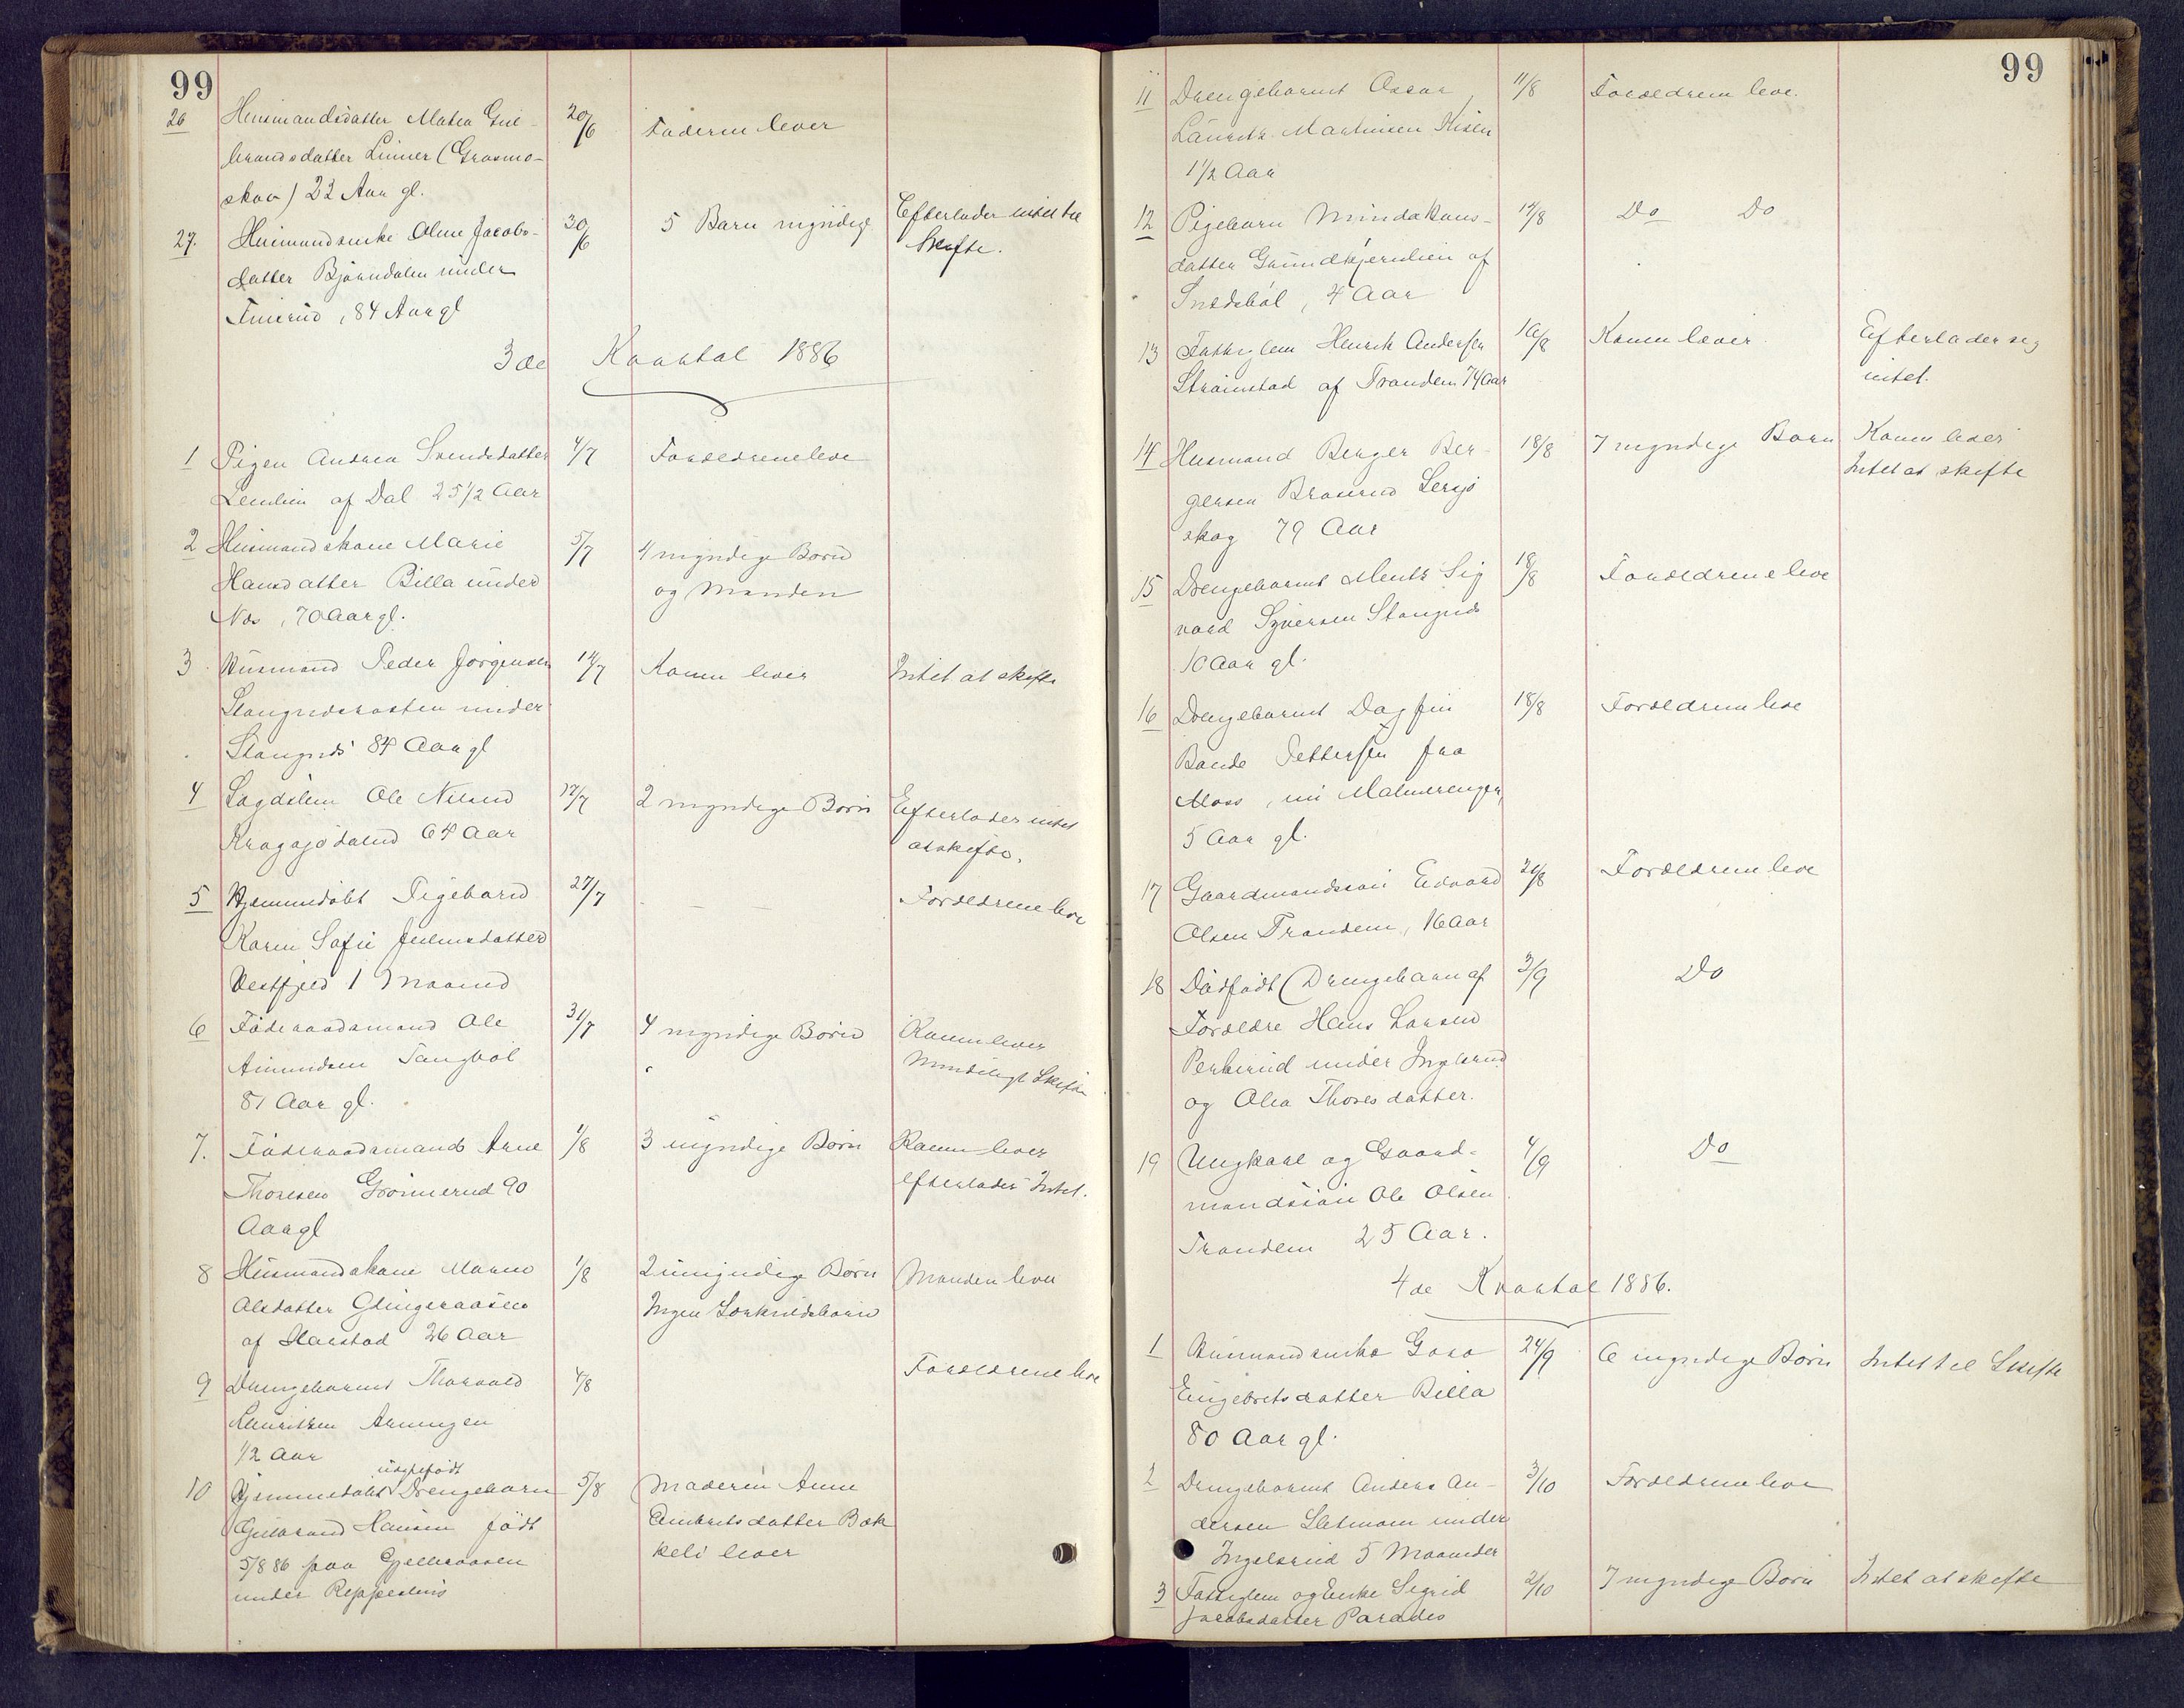 99
26 Husmandsdatter Matea Gul- 20/6 Faderen lever
brandsdatter Linner (Grasmo-
skov) 22 Aar gl.
27. Husmandsenke Oline Jacobs- 30/6 5 Barn myndige Efterlader intet til
datter Bjørndalen under Skifte.
84 Aar gl
3de Kvartal 1886
1 Pigen Andrea Svendsdatter 4/7 Forældrene leve
af Dal 25 1/2 Aar
2 Husmandskone Marie 5/7 4 myndige Børn
Hansdatter Billa under og Manden
Næs, 70 Aar gl.
3 Husmand Peder Jørgensen 14/7 Konen lever Intet at skifte
under
Stangnds 84 Aar gl
4 Lægdslem Ole Nilsen 17/7 2 myndige Børn Efterlader intet
64 Aar at skifte.
5 Hjemmedøbt Pigebarn 27/7 — — Forældrene leve
Karen Sofie Julinsdatter
Vestfjed 1 Maaned
6 Føderaadsmand Ole 31/7 4 myndige Børn Konen lever
Amundsen Tangbøl Mindeligt Skifte
81 Aar gl.
7. Føderaadsmand Arne 1/8 3 myndige Børn Konen lever
Thoresen Grønnerud 90 efterlader Intet.
Aar gl
8 Husmandskone Maren 1/8 2 umyndige Børn Manden lever
Olsdatter Glingeraasen Ingen Særkuldsbørn
af Harstad 26 Aar
9 Drengebarnet Thorvald 4/8 Forældrene leve
Lauritzen Arnungen
1/2 Aar
uægtefødt
10 Hjemmedøbt Drengebarn 5/8 Moderen Anne
Gulbrand Hansen født Embretsdatter Bæk
5/8 86 paa Gjelleraasen keli lever
under Reppestens
99
11 Drengebarnet Oscar 11/8 Forældrene leve.
Lauritz Martinsen Kisen
1 1/2 Aar
12 Pigebarn Minda Hans- 14/8 Do Do
datter Grundkjernlien af
Snedsbøl, 4 Aar
13 Fattiglem Henrik Andersen 16/8 Konen lever Efterlader sig
Strømstad af Trandem 74 Aar intet.
14 Husmand Berger Ber- 18/8 7 myndige Børn Konen lever
gersen Braserud Sersjø Intet at skifte
skog 79 Aar
15 Drengebarnet Mentz Sig 18/8 Forældrene leve
vard Syversen Stangnds
10 Aar gl.
16 Drengebarnet Dagfin 18/8 Forældrene leve
Bande Pettersen fra
Moss, nu Malmerengen,
5 Aar gl.
17 Gaardmandssøn Edvard 26/8 Forældrene leve
Olsen Trandem, 16 Aar
18 Dødfødt (Drengebarn af 3/9 Do
Forældre Hans Larsen
Perkerud under Ingelsrud
og Olea Thoresdatter.
19 Ungkarl og Gaard- 4/9 Do
mandssøn Ole Olsen
Trandem 25 Aar.
4de Kvartal 1886.
1 Husmandsenke Goro 24/9 6 myndige Børn Intet til Skifte
Engebretsdatter Billa
80 Aar gl.
2 Drengebarnet Anders An- 3/10 Forældrene leve
dersen Sletmoen under
Ingelsrud 5 Maaneder
3 Fattiglem og Enke Sigrid 2/10 7 myndige Børn Intet at skifte
Jacobsdatter Paradis